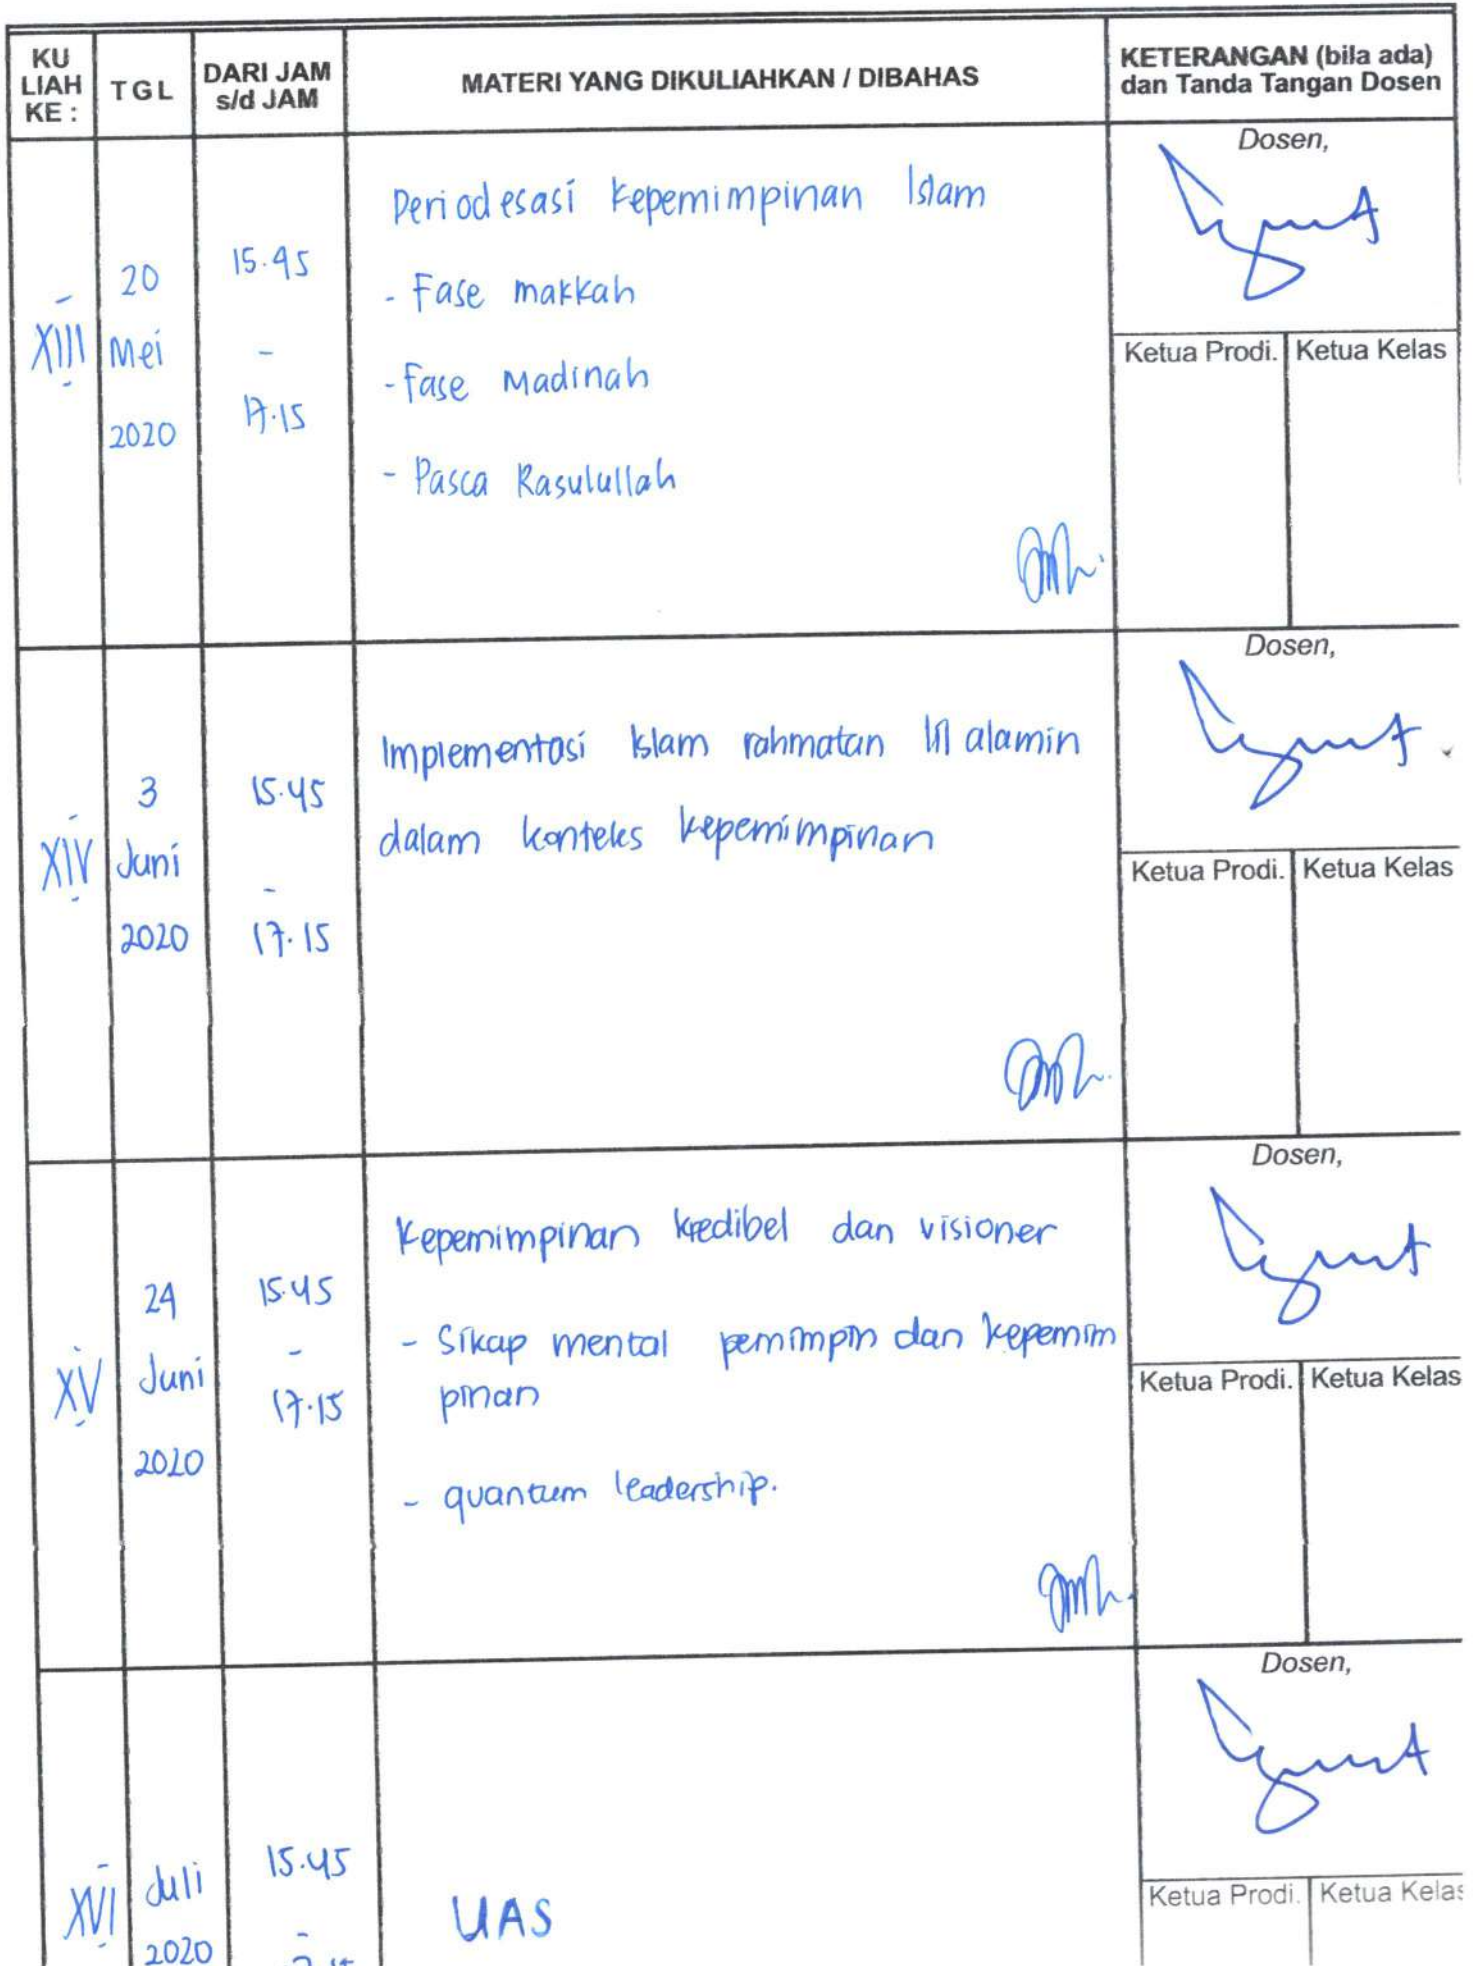 KU LIAH KE :
TGL
DARI JAM s/d JAM
MATERI YANG DIKULIAHKAN / DIBAHAS
KETERANGAN (bila ada) dan Tanda Tangan Dosen
XIII
20 Mei 2020
15.45 - 17.15
Periodesasi Kepemimpinan Islam
- Fase makkah
- Fase Madinah
- Pasca Rasulullah
Dosen,
Ketua Prodi.
Ketua Kelas
XIV
3 Juni 2020
15.45 - 17.15
Implementasi Islam rahmatan lil alamin
dalam konteks kepemimpinan
Dosen,
Ketua Prodi.
Ketua Kelas
XV
24 Juni 2020
15.45 - 17.15
Kepemimpinan kredibel dan visioner
- Sikap mental pemimpin dan kepemim
pinan
- quantum leadership.
Dosen,
Ketua Prodi.
Ketua Kelas
XVI
Juli 2020
15.45 -
UAS
Dosen,
Ketua Prodi.
Ketua Kelas